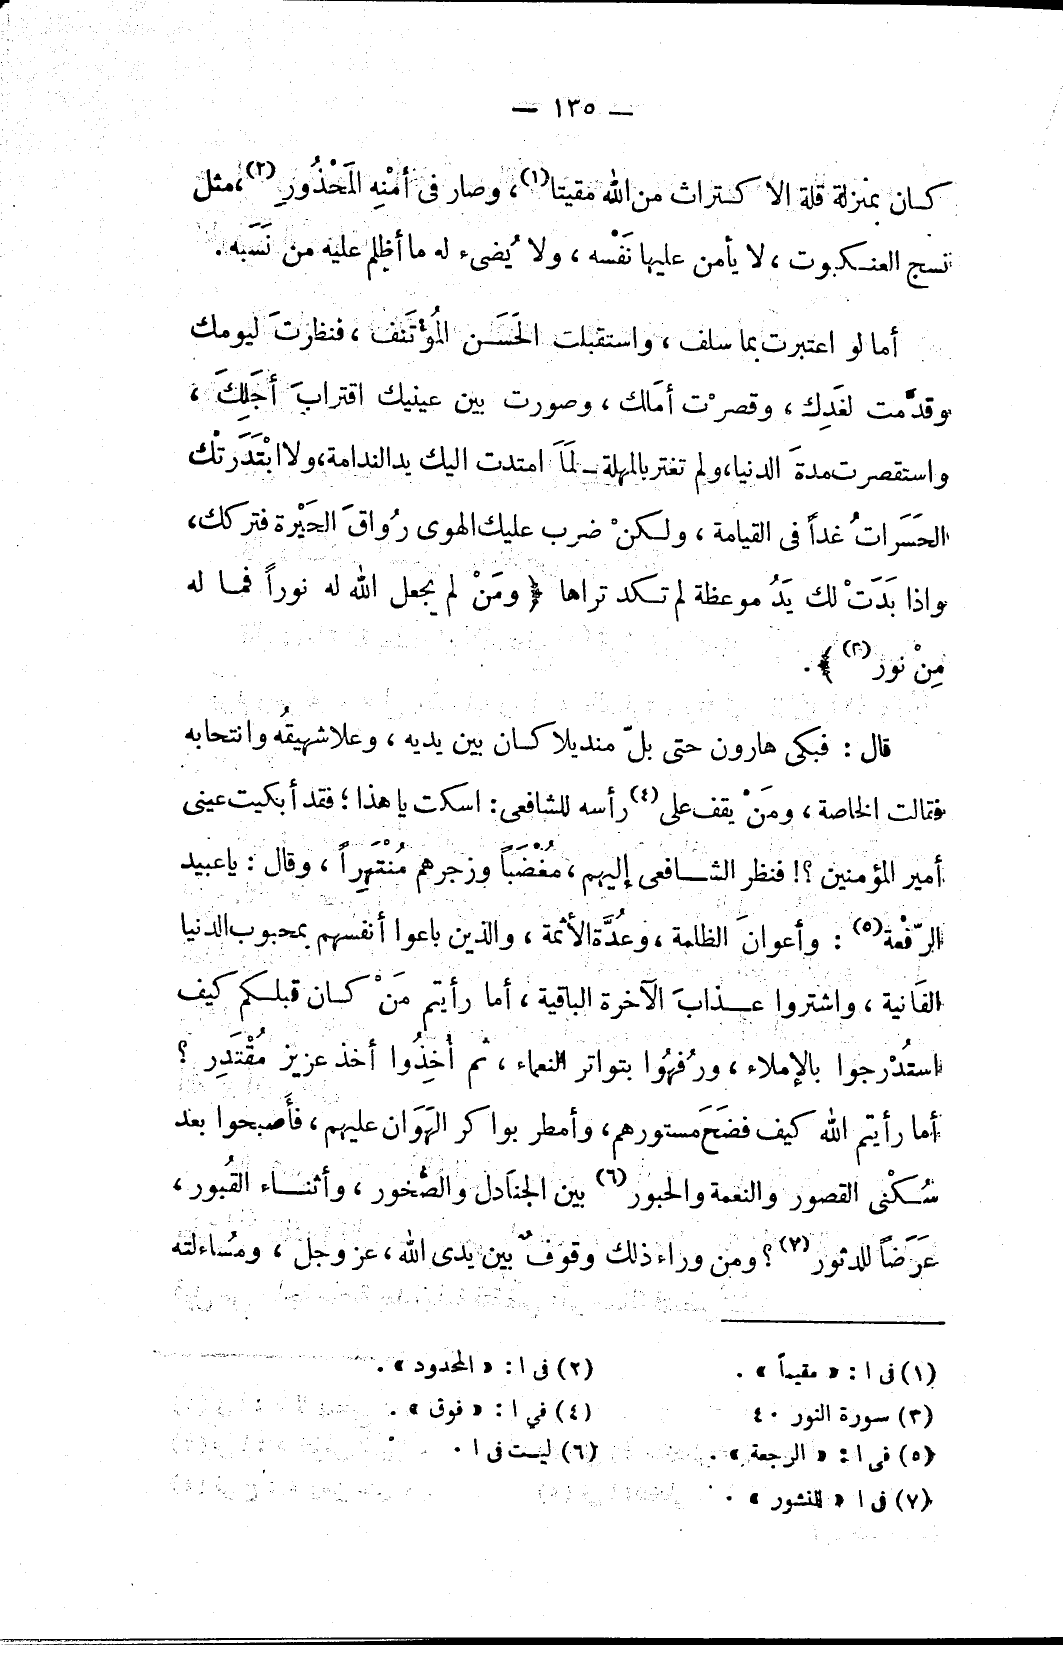 — ١٣٥ —
كان بمنزلة قلة الاكتراث من الله مقيتا(١)، وصار فى أمْنِه المَحْذُورِ(٢)، مثل
نسج العنكبوت، لا يأمن عليها نَفْسه، ولا يُضىء له ما أظلم عليه من نَسَبه.
أما لو اعتبرت بما سلف، واستقبلت الحَسَن المُؤْتَنَف، فنظرتَ ليومك
وقدَّمت لغَدِك، وقصرْت أمَالك، وصورت بين عينيك اقترابَ أجَلِكَ،
واستقصرت مدةَ الدنيا، ولم تغتر بالمهلة ـ لَمَا امتدت اليك يد الندامة، ولا ابْتَدَرَتْك
الحَسَراتُ غداً فى القيامة، ولكنْ ضرب عليك الهوى رُواقَ الحَيْرة فتركك،
واذا بَدَتْ لك يَدُ موعظة لم تكد تراها ﴿ ومَنْ لم يجعل الله له نوراً فما له
مِنْ نور(٣) ﴾.
قال: فبكى هارون حتى بلّ منديلا كان بين يديه، وعلا شهيقُه وانتحابه
فقالت الخاصة، ومَنْ يقف على(٤) رأسه للشافعى: اسكت يا هذا؛ فقد أبكيت عينى
أمير المؤمنين؟! فنظر الشافعى إليهم، مُغْضَباً وزجرهم مُنْتَهِراً، وقال: يا عبيد
الرّفْعة(٥): وأعوانَ الظلمة، وعُدَّة الأثمة، والذين باعوا أنفسهم بمحبوب الدنيا
الفَانية، واشتروا عذابَ الآخرة الباقية، أما رأيتم مَنْ كان قبلكم كيف
استُدْرجوا بالإملاء، ورُفهُوا بتواتر النعماء، ثم أُخِذُوا أخذ عزيز مُقْتَدِر؟
أما رأيتم الله كيف فضَحَ مستورهم، وأمطر بواكر الهَوَان عليهم، فأَصبحوا بعد
سُكْنى القصور والنعمة والحبور(٦) بين الجنادل والصُّخور، وأثناء القُبور،
عَرَضاً للدثور(٧)؟ ومن وراء ذلك وقوفٌ بين يدى الله، عز وجل، ومُساءلته
(١) فى ا: « مقيماً ». (٢) فى ا: « المحدود ».
(٣) سورة النور ٤٠ (٤) في ا: « فوق ».
(٥) فى ا: « الرجعة ». (٦) ليست فى ا.
(٧) فى ا « للنشور ».